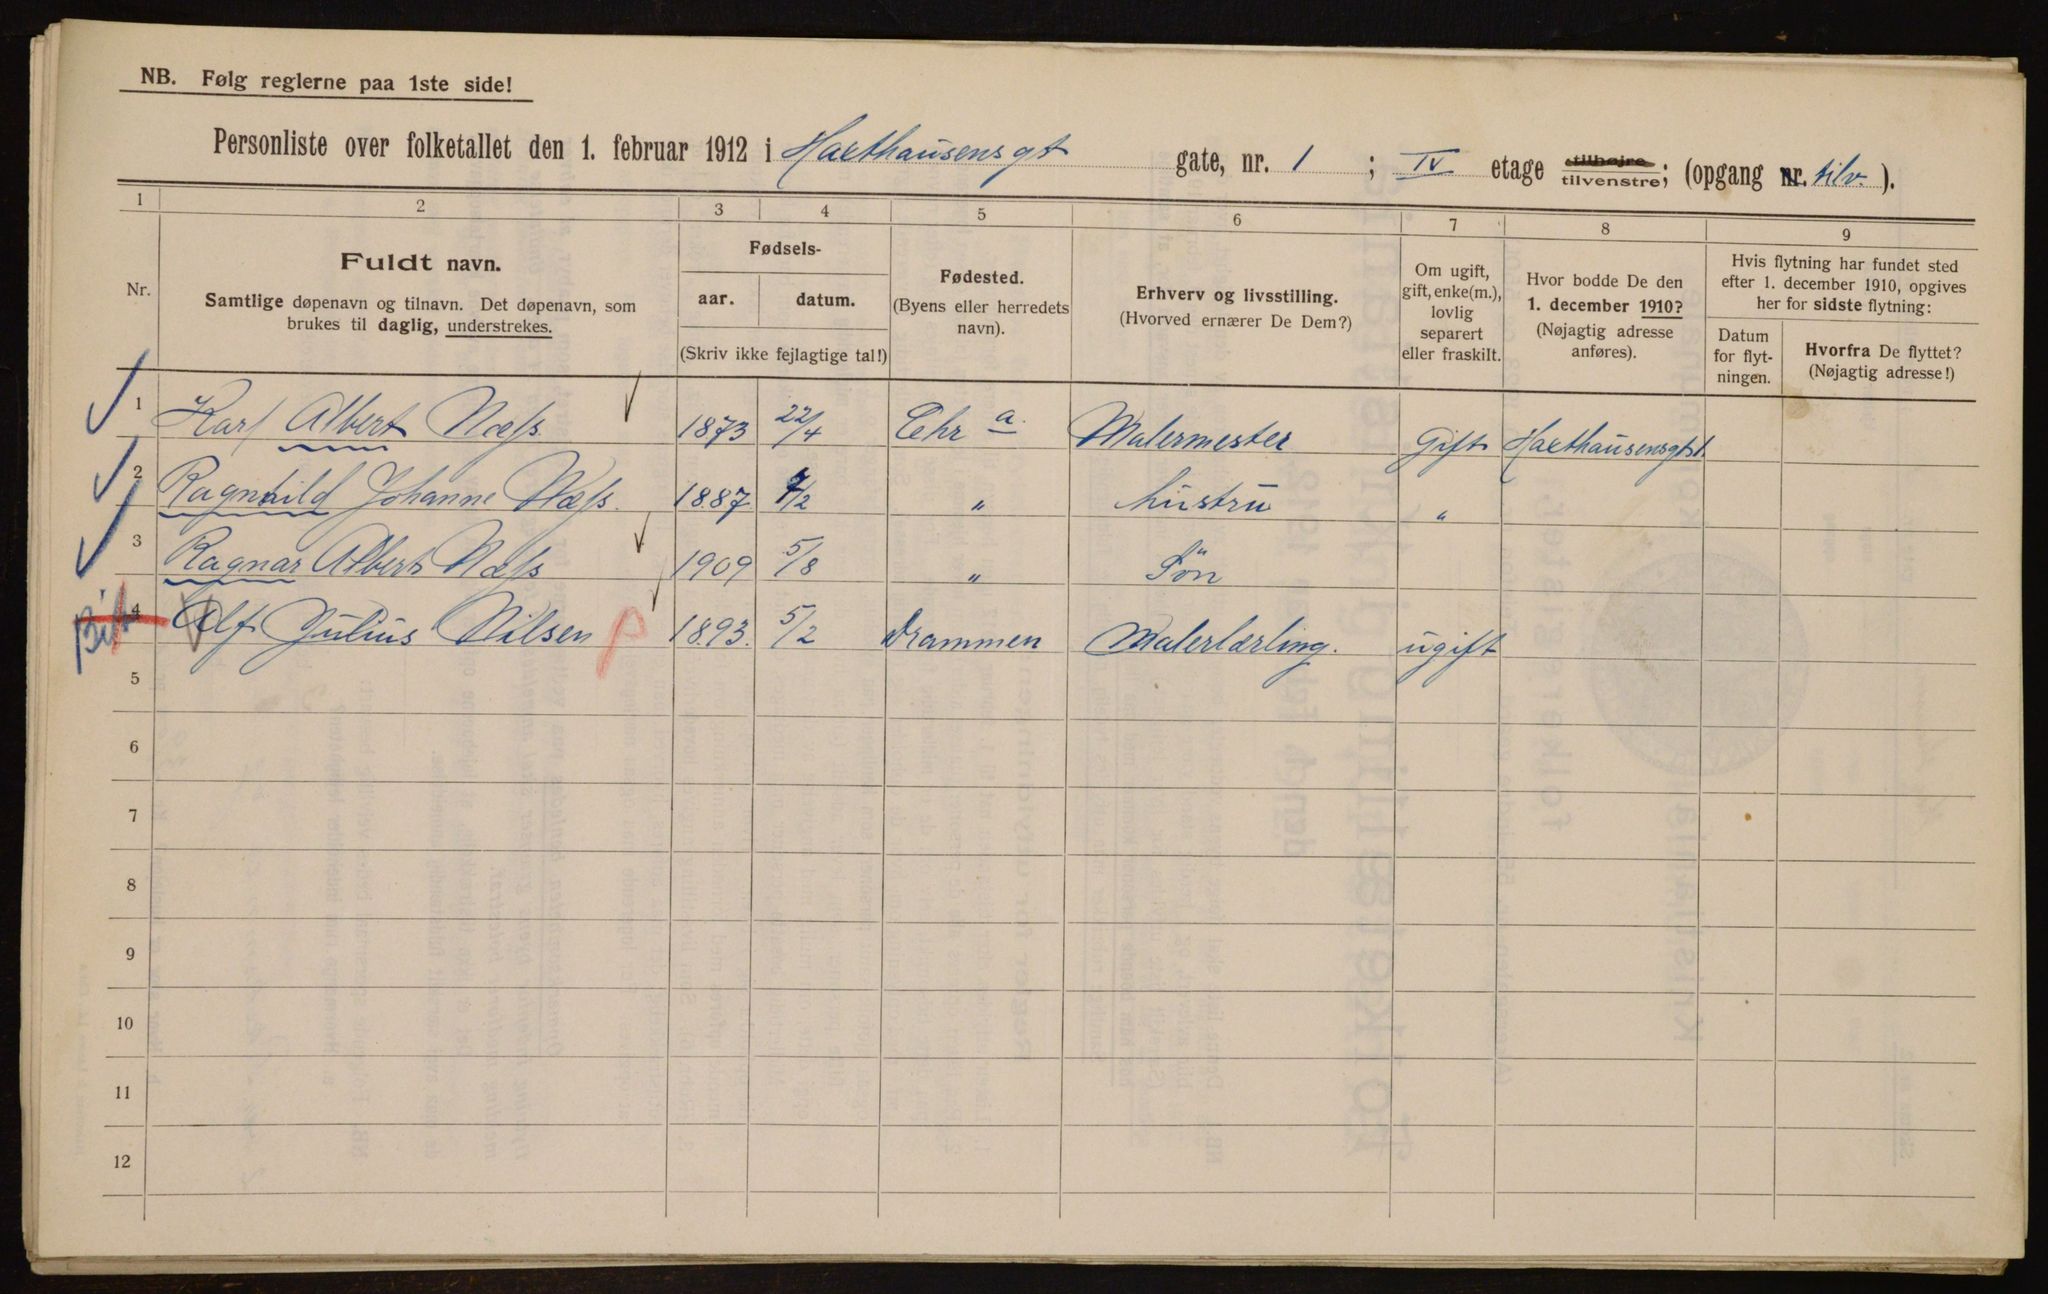 NB. Følg reglerne paa 1ste side!
Personliste over folketallet den 1. februar 1912 i Haxthausensgt gate, nr. 1 ; IV etage tilhøjre tilvenstre; (opgang nr. tilv. ).
1 2 3 4 5 6 7 8 9
Nr.
Fuldt navn.
Samtlige døpenavn og tilnavn. Det døpenavn, som
brukes til daglig, understrekes.
Fødsels-
aar. datum.
(Skriv ikke fejlagtige tal!)
Fødested.
(Byens eller herredets
navn).
Erhverv og livsstilling.
(Hvorved ernærer De Dem?)
Om ugift,
gift, enke(m.),
lovlig
separert
eller fraskilt.
Hvor bodde De den
1. december 1910?
(Nøjagtig adresse
anføres).
Hvis flytning har fundet sted
efter 1. december 1910, opgives
her for sidste flytning:
Datum
for flyt-
ningen.
Hvorfra De flyttet?
(Nøjagtig adresse!)
1 Karl Albert Næss 1873 22/4 Chra. Malermester Gift Haxthausensgt 1.
2 Ragnhild Johanne Næss. 1887 /2 " hustru "
3 Ragnar Albert Næss 1909 5/8 " Søn
4 Alf Julius Nilsen 1893. 5/2 Drammen Malerlærling. ugift
5
6
7
8
9
10
11
12